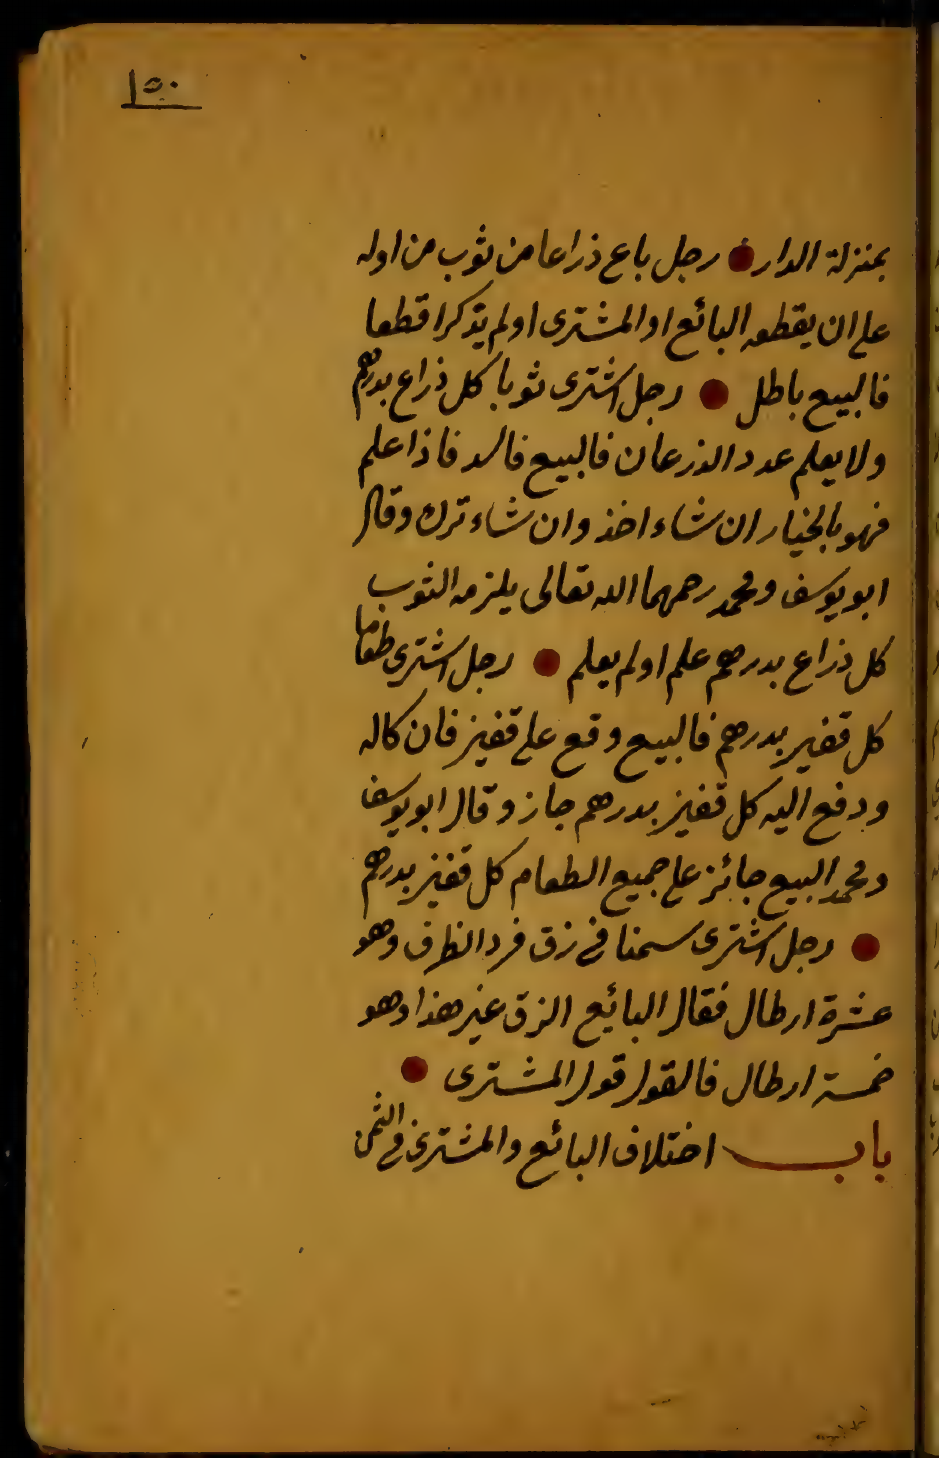 ١٥٠
بمنزلة الدار ● رجل باع ذراعا من ثوب من اوله
على ان يقطعه البائع او المشترى او لم يذكرا قطعا
فالبيع باطل ● رجل اشترى ثوبا كل ذراع بدرهم
ولا يعلم عدد الذرعان فالبيع فاسد فاذا علم
فهو بالخيار ان شاء اخذ وان شاء ترك وقال
ابو يوسف ومحمد رحمهما الله تعالى يلزمه الثوب
كل ذراع بدرهم علم او لم يعلم ● رجل اشترى طعاما
كل قفيز بدرهم فالبيع وقع على قفيز فان كاله
ودفع اليه كل قفيز بدرهم جاز وقال ابو يوسف
ومحمد البيع جائز على جميع الطعام كل قفيز بدرهم
● رجل اشترى سمنا فى زق فرد الظرف وهو
عشرة ارطال فقال البائع الزق غير هذا وهو
خمسة ارطال فالقول قول المشترى ●
باب اختلاف البائع والمشترى فى الثمن